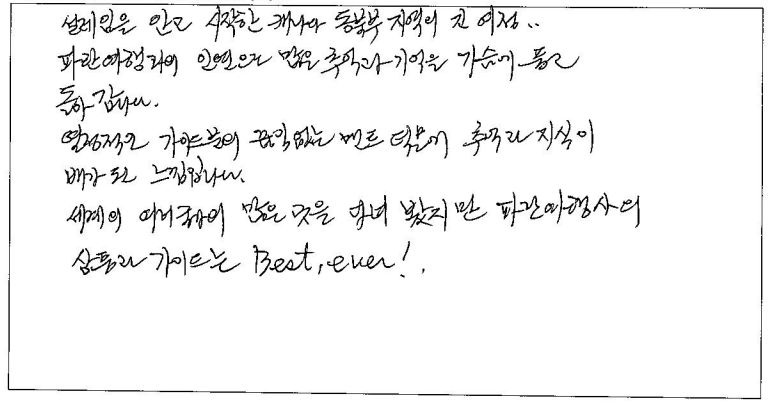 설레임을 안고 시작한 캐나다 동북부 지역의 긴 여정..
파란여행과의 인연으로 많은 추억과 기억을 가슴에 품고
돌아 갑니다.
열정적인 가이드분의 끊임없는 멘트 덕분에 추억과 지식이
배가 된 느낌입니다.
세계의 여러 국가의 많은 곳을 다녀 봤지만 파란여행사의
상품과 가이드는 Best, ever!.